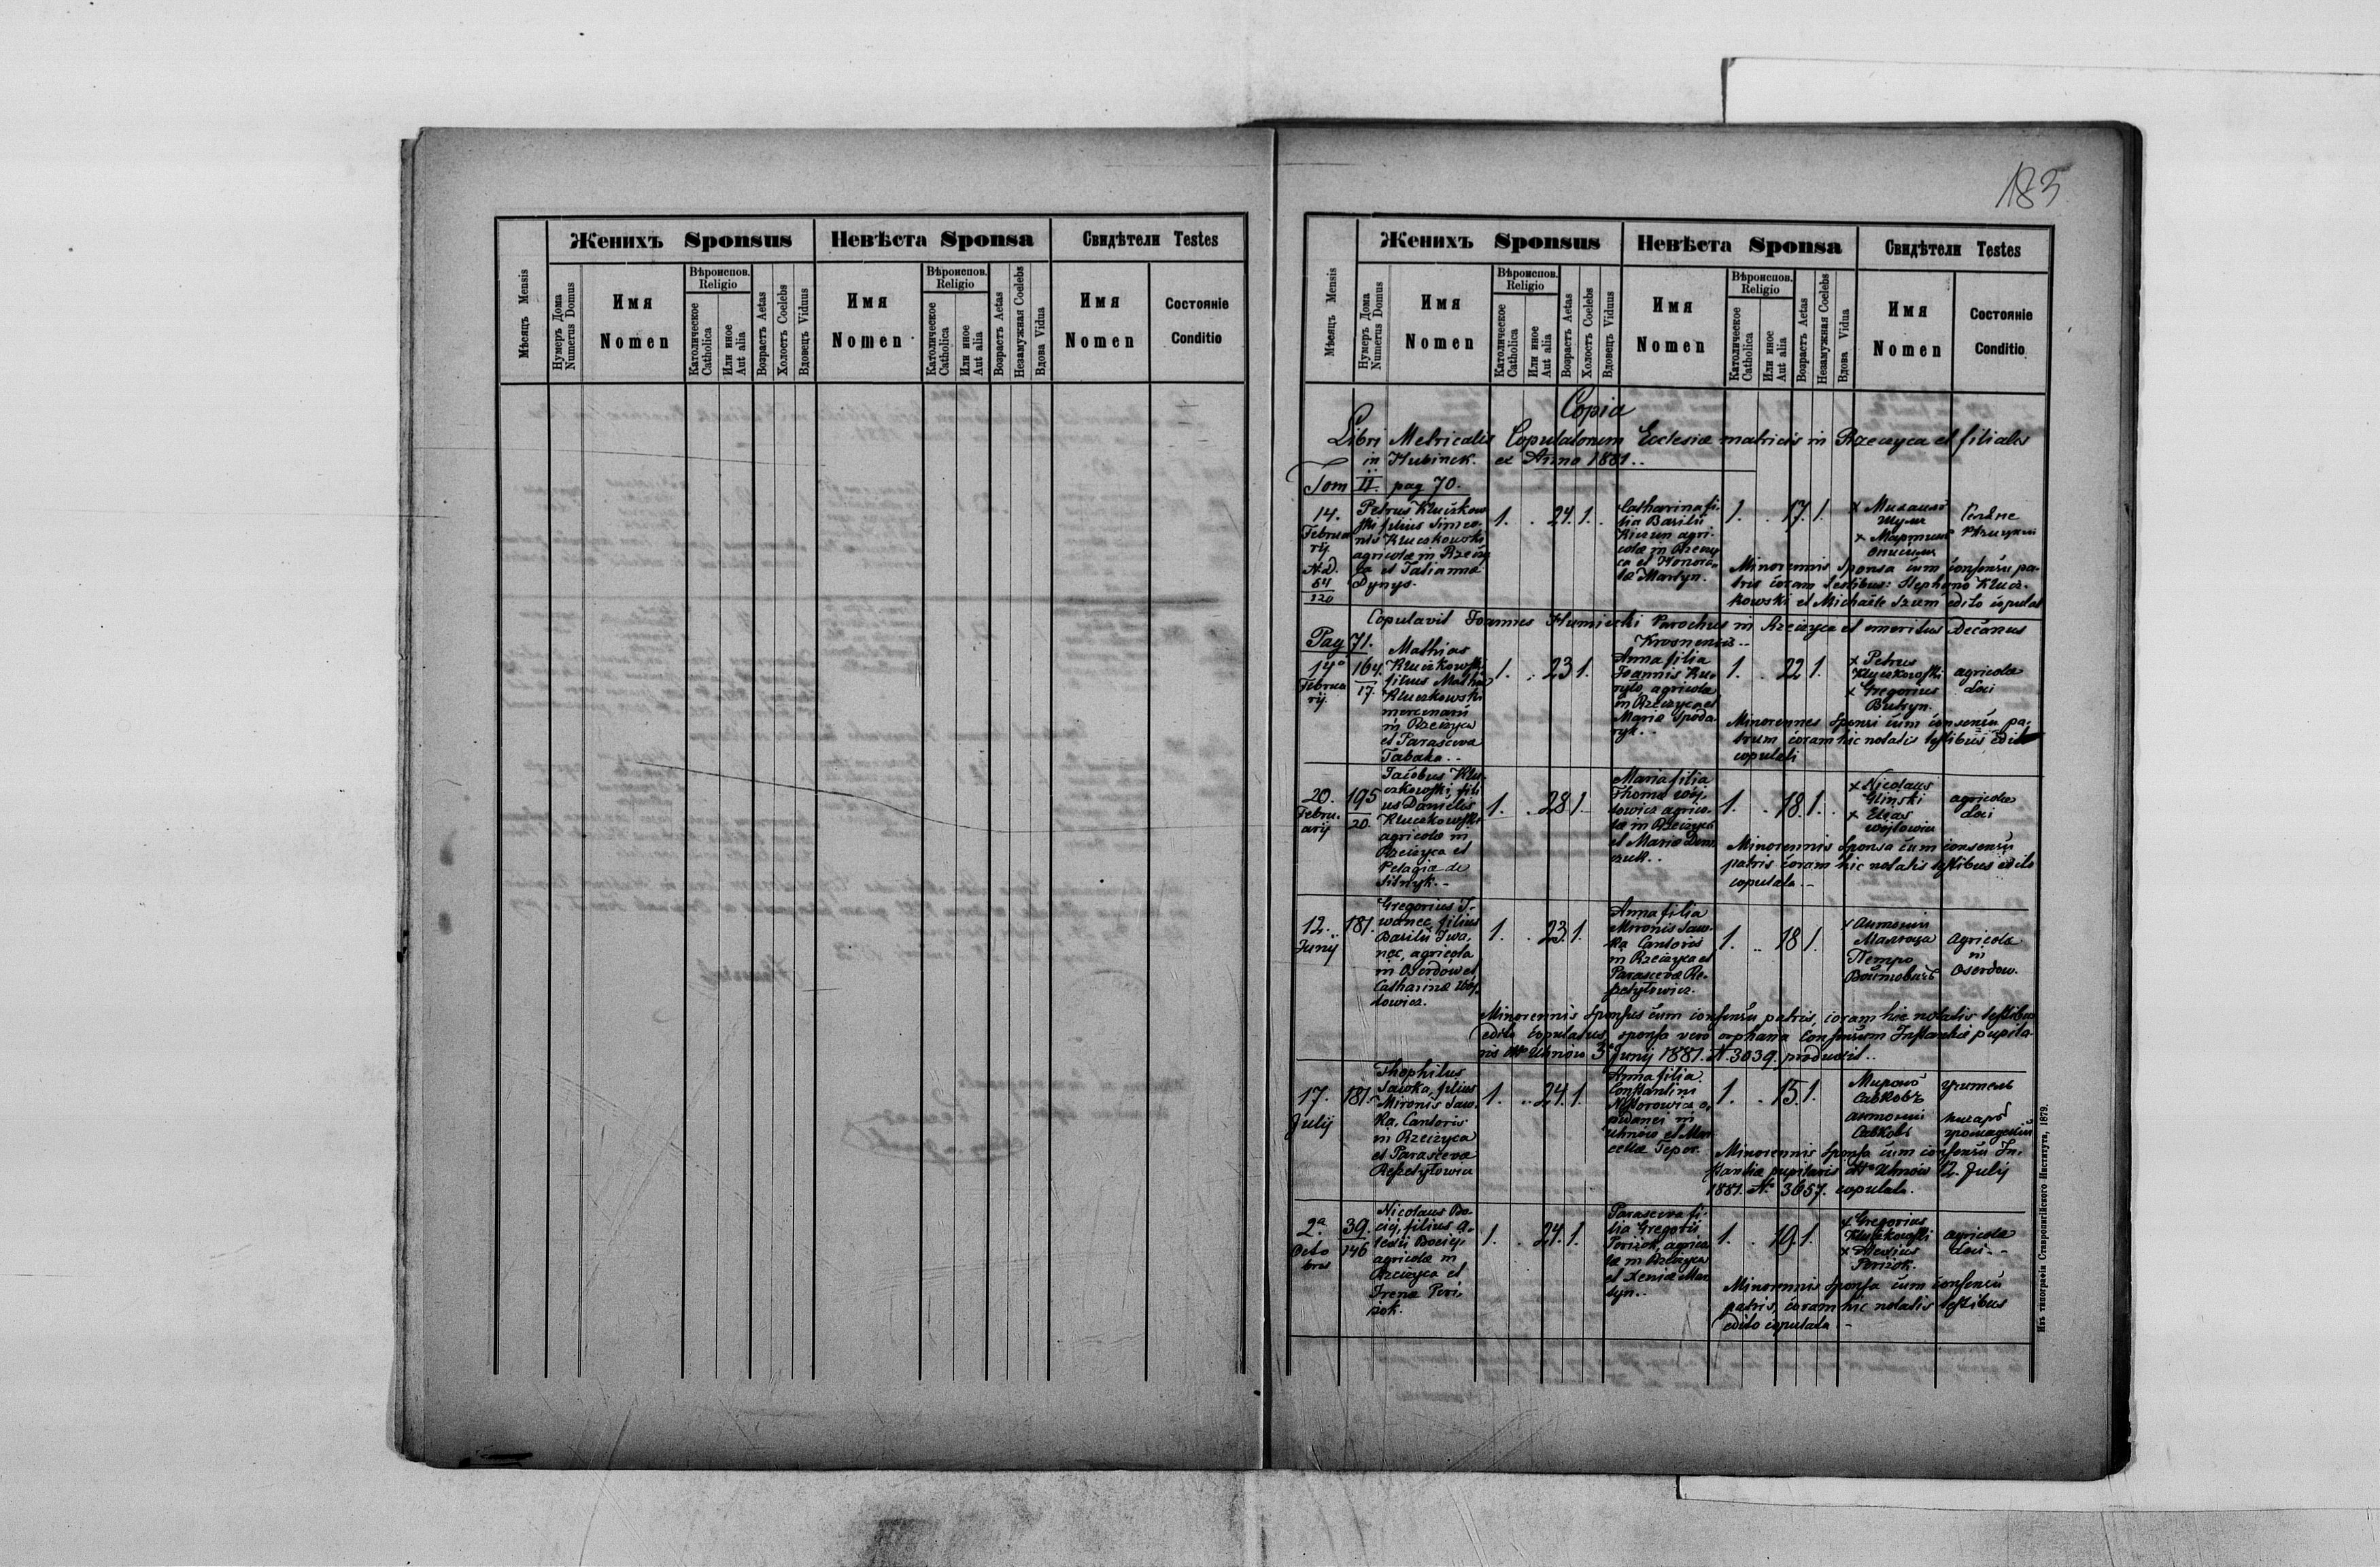 183
Женихъ Sponsus
Невѣста Sponsa
Свидѣтели Testes
Мѣсяцъ Mensis
Нумеръ Дома
Numerus Domus
Имя
Nomen
Вѣроиспов.
Religio
Католическое
Catholica
Или иное
Aut alia
Возрастъ Aetas
Холостъ Coelebs
Вдовецъ Viduus
Имя
Nomen
Вѣроиспов.
Religio
Католическое
Catholica
Или иное
Aut alia
Возрастъ Aetas
Незамужная Coelebs
Вдова Vidua
Имя
Nomen
Состояніе
Conditio
Женихъ Sponsus
Невѣста Sponsa
Свидѣтели Testes
Мѣсяцъ Mensis
Нумеръ Дома
Numerus Domus
Имя
Nomen
Вѣроиспов.
Religio
Католическое
Catholica
Или иное
Aut alia
Возрастъ Aetas
Холостъ Coelebs
Вдовецъ Viduus
Имя
Nomen
Вѣроиспов.
Religio
Католическое
Catholica
Или иное
Aut alia
Возрастъ Aetas
Незамужная Coelebs
Вдова Vidua
Имя
Nomen
Состояніе
Conditio
Copia
Libri Metricalis Copulatorum Ecclesiæ matricis in Rzeczyca et filialis
in Hubinek. ex Anno 1881..
Tom II. pag 70.
14.
Februa
rij
Nd.
64
120
Petrus Kluczkow
ski filius Simeo-
nis Kluczkowski
agricolæ in Rzeczy
ca et Tatianna
Dynys.
1. . 24. 1.
Catharina fi-
lia Basilii
agri-
colæ in Rzeczy
ca et Honora-
tæ Martyn.
1. . 17. 1.
x Михаилъ
Шумъ
x Мартинъ
Онисимъ
Minorennis Sponsa cum consensu pa-
tris coram testibus: Stephano Klucz-
kowski et Michaele Szum edito copulat
Copulavit Joannes Humiecki Parochus in Rzeczyca et emeritus Decanus
Pag 71.
14a
Februa
rij
164.
17.
Mathias
Kluczkowski
filius Mathiæ
Kluczkowski
mercenarii
in Rzeczyca
et Parasceva
Tabaka..
1. . 23 1.
Anna filia
Joannis Ku-
ryło, agricolæ
in Rzeczyca et
Maria Spoda-
ryk..
1. . 22 1.
x Petrus
Kluczkowski
x Gregorius
Butryn.
agricolæ
loci
Minorennes Sponsi cum consensu pa-
trum coram hic notatis testibus edito
copulati
20.
Febru-
arij
195
20.
Jacobus Klu-
czkowski, fili
us Danielis
Kluczkowski
agricolæ in
Rzeczyca et
Pelagiæ de
Sitnyk.-
1. . 28 1.
Maria filia
Thomæ Woj-
towicz agrico-
læ in Rzeczyca
et Maria Dem-
czuk..
1. . 18. 1.
x Nicolaus
Glinski
x Elias
Wojtowicz
agricolæ
loci
Minorennis Sponsa cum consensu
patris coram hic notatis testibus edito
copulata.-
12.
Junij
181.
Gregorius I-
wanec, filius
Basilii Iwa-
nec, agricola
in Oserdow et
Catharinæ Woj-
towicz.
1. . 23. 1.
Anna filia
Mironis Saw-
ka Cantoris
in Rzeczyca et
Parasceva Re-
petyłowicz.
1. .. 18 1.
x Антоній
Малюца
Петро
Войтовичъ
Agricolæ
in
Oserdow.
Minorennis Sponsus cum consensu patris, coram hic notatis testibus
edito copulatus, sponsa vero orphana consensum Instantiæ pupila-
ris Uhnów 3 Junij 1881. N. 3039 produxit..
17.
Julij
181.
Thophilus
Sawka, filius
Mironis Saw-
ka, Cantoris
in Rzeczyca
et Parasceva
Repetyłowicz
1. .. 24. 1.
Anna filia
Constantini
Nestorowicz o-
pidanei in
Uhnów et Mar-
cellæ Tepor.
1. . 15. 1.
Миронъ
Савковъ
Антоній
Савковъ
учитель
писаръ
громадскій
Minorennis Sponsa cum consensu In-
stantiæ pupilaris Uhnów 12. Julij
1881. No 3657. copulata.
2a
Octo
bris
39.
146
Nicolaus Bo-
cij, filius A-
lexii Bocij,
agricolæ in
Rzeczyca et
Irenæ Peri-
zok.
1. . 24. 1.
Parasceva fi-
lia Gregorii
Perizok, agrico
læ in Rzeczyca
et Xeniæ Mar
tyn..
1. . 19. 1.
x Gregorius
Kluczkowski
x Alexius
Perizok.
agricolæ
loci--
Minorennis Sponsa cum consensu
patris, coram hic notatis testibus
edito copulata.-
Изъ типографіи Ставропигійского Института, 1879.